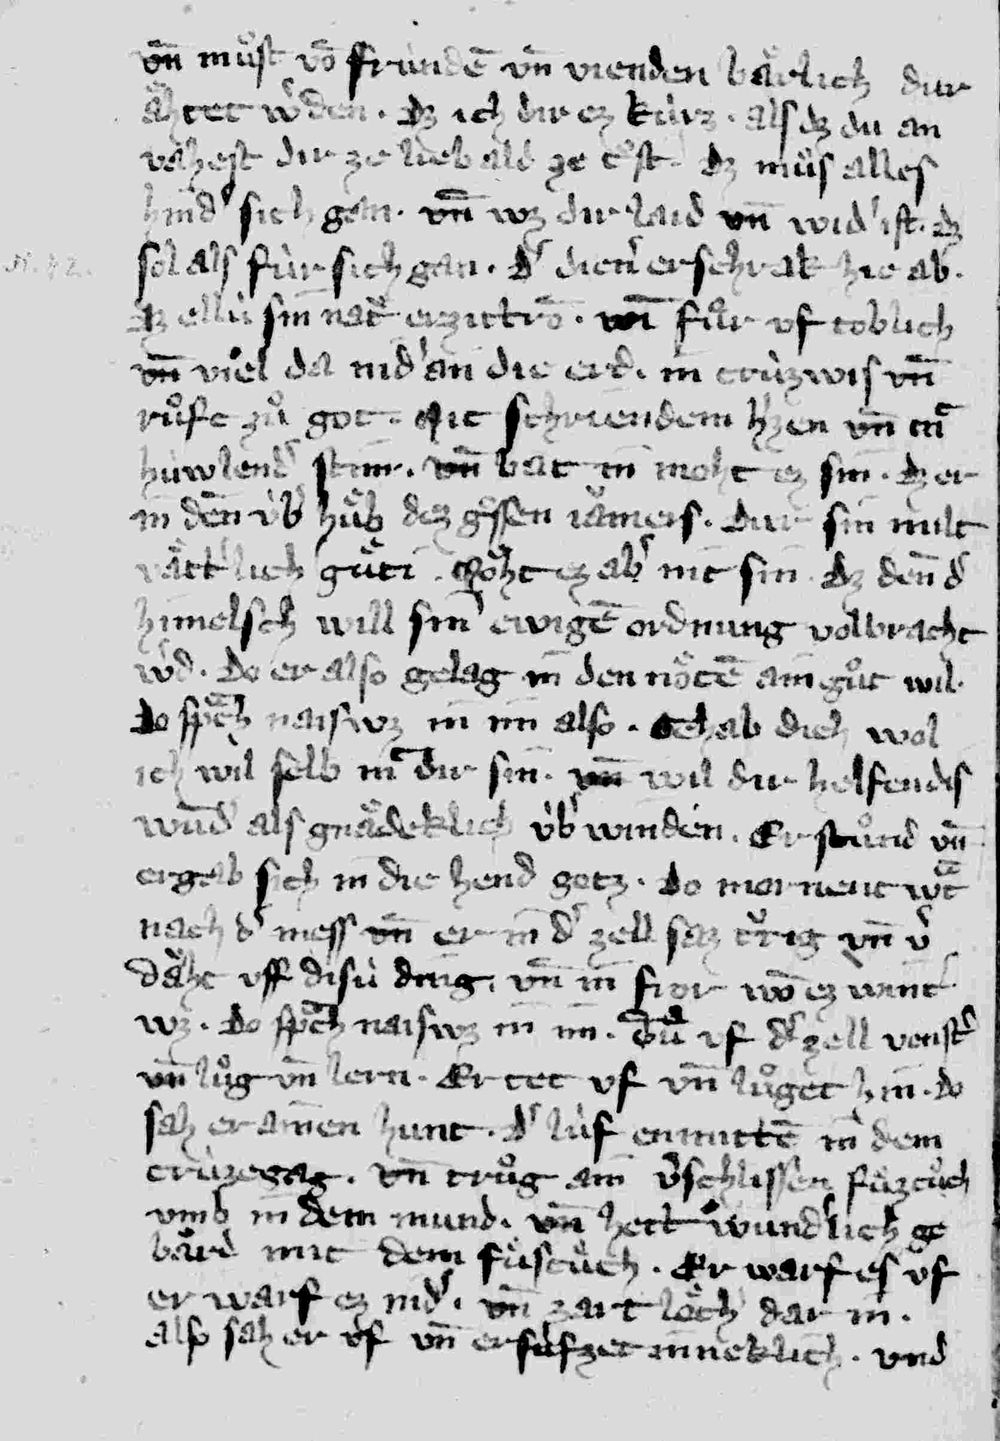 vn̄ muͦst vō fruͥndē vn̄ vienden baͤrlich dur
aͤhtet wᵉden. dz ich dir ez kuͥrz. als dz du an
vahest dir ze lieb ald ze tᵒst dz muͤs alles
hindᵉ sich gan. vn̄ wz dir laid vn̄ widᵉ ist. dz
sol als fuͥr sich gan. dᵉ dienᵉ erschrak hie ab.
dz elluͥ sin natᵉ erzittrō. vn̄ fuͦr uf toblich
vn̄ viel da nidᵉ an die erd. in cruͥzwis vn̄
ruͦft zuͦ got. mit schriendem hᵉzen vn̄ mͭ
huͥwlendᵉ stim̄. vn̄ bat in moht ez sin. dz er
in den̄ uͥbᵉ huͤb dez gᵒssen iamers. dur sin milt
vaͤttᵉlich guͤti. Moͤht ez abᵉ nit sin. dz den̄ dᵉ
himelsch will sinᵉ ewigē ordnung volbracht
wᵉd. do er also gelag in den noͤtē ain guͦt wil.
do spᵃch naiswz in im also. Gehab dich wol
ich wil selb mͭ dir sin. vn̄ wil dir helfen dis
wūdᵉ als gnaͤdeklich uͥbᵉ winden. Er stuͦnd vn̄
ergab sich in die hend gotz. do mornent wͣt
nach dᵉ mess vn̄ er in dᵉ zell saz trᵛrig vn̄ vᵉ
daͤht uff disuͥ ding. vn̄ in fror wō ez wintᵉ
wz. do spᵃch naiswz in im. Tuͦ uf dᵉ zell venstᵉ
vn̄ luͦg vn̄ lern. Er tet uf vn̄ luͦget hin. do
sah er ainen hunt. dᵉ luͥf enmittē in dem
cruͥzegag. vn̄ truͦg ain vᵉschlissen fuͦztuͦch
umb in dem mund. vn̄ hett wundᵉlich ge
baͤrd mit dem fuͦstuͦch. Er warf es uf
er warf ez nidᵉ. vn̄ zart loͤchᵉ dar in.
also sah er uf vn̄ ersuͥfzet inneklich. und